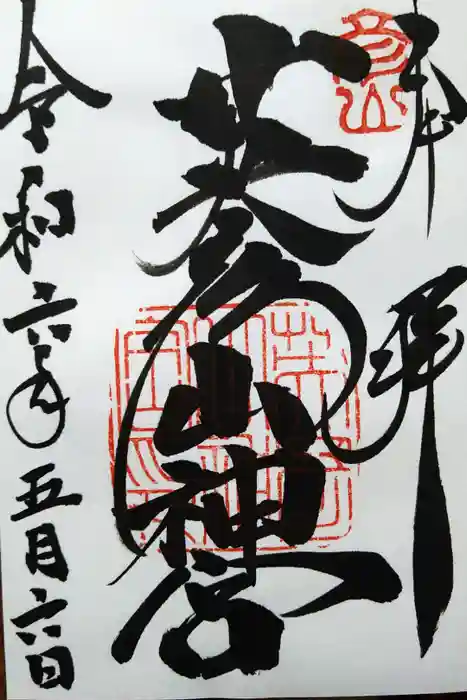 奉拝
英彦山神宮
令和六年五月六日